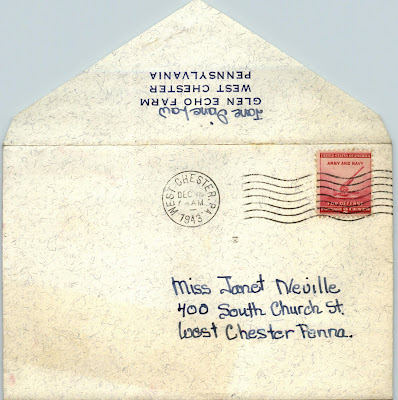 Jane
GLEN ECHO FARM
WEST CHESTER
PENNSYLVANIA
WEST CHESTER, PA.
DEC
AM
1943
UNITED STATES OF AMERICA
ARMY AND NAVY
FOR DEFENSE
Miss Janet Neville
400 South Church St.
West Chester Penna.